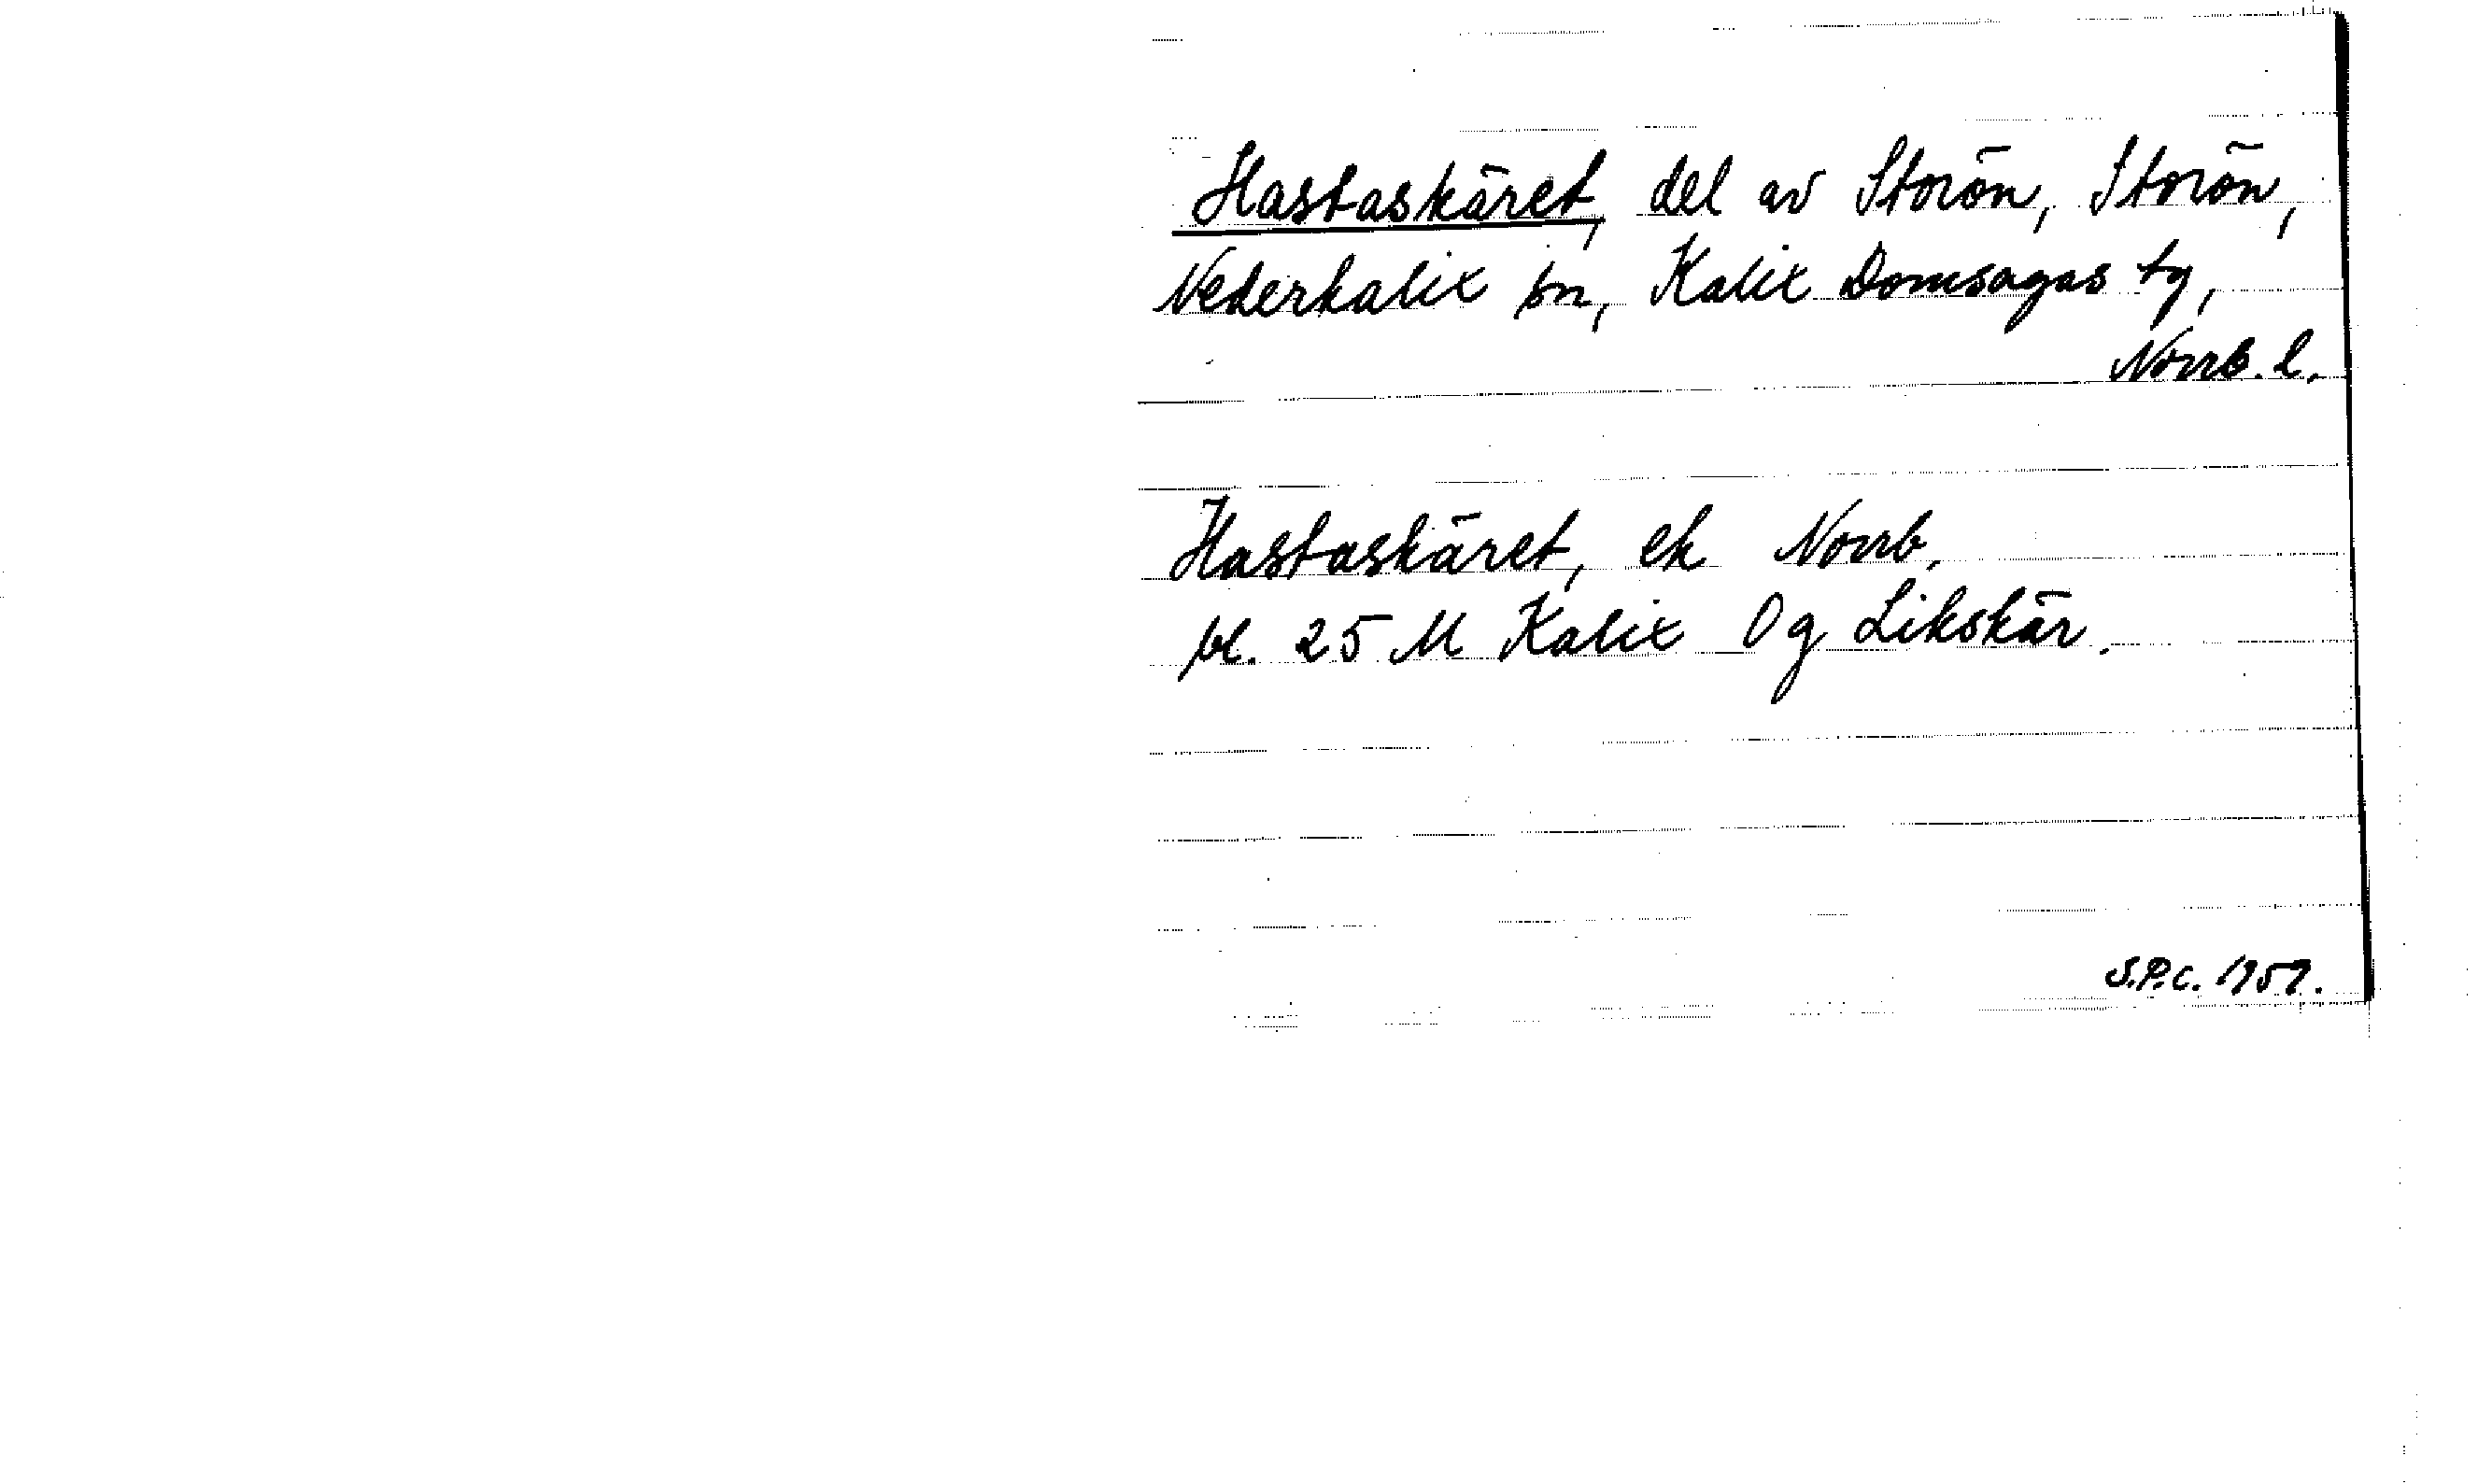 Hastaskäret, del av Storön, Storön,
Nederkalix sn, Kalix Domsagas tg,
Norrb. l.
Hastaskäret, ek Norrb.
bl. 25 M Kalix Og Likskär.
S.P.C. 1957.